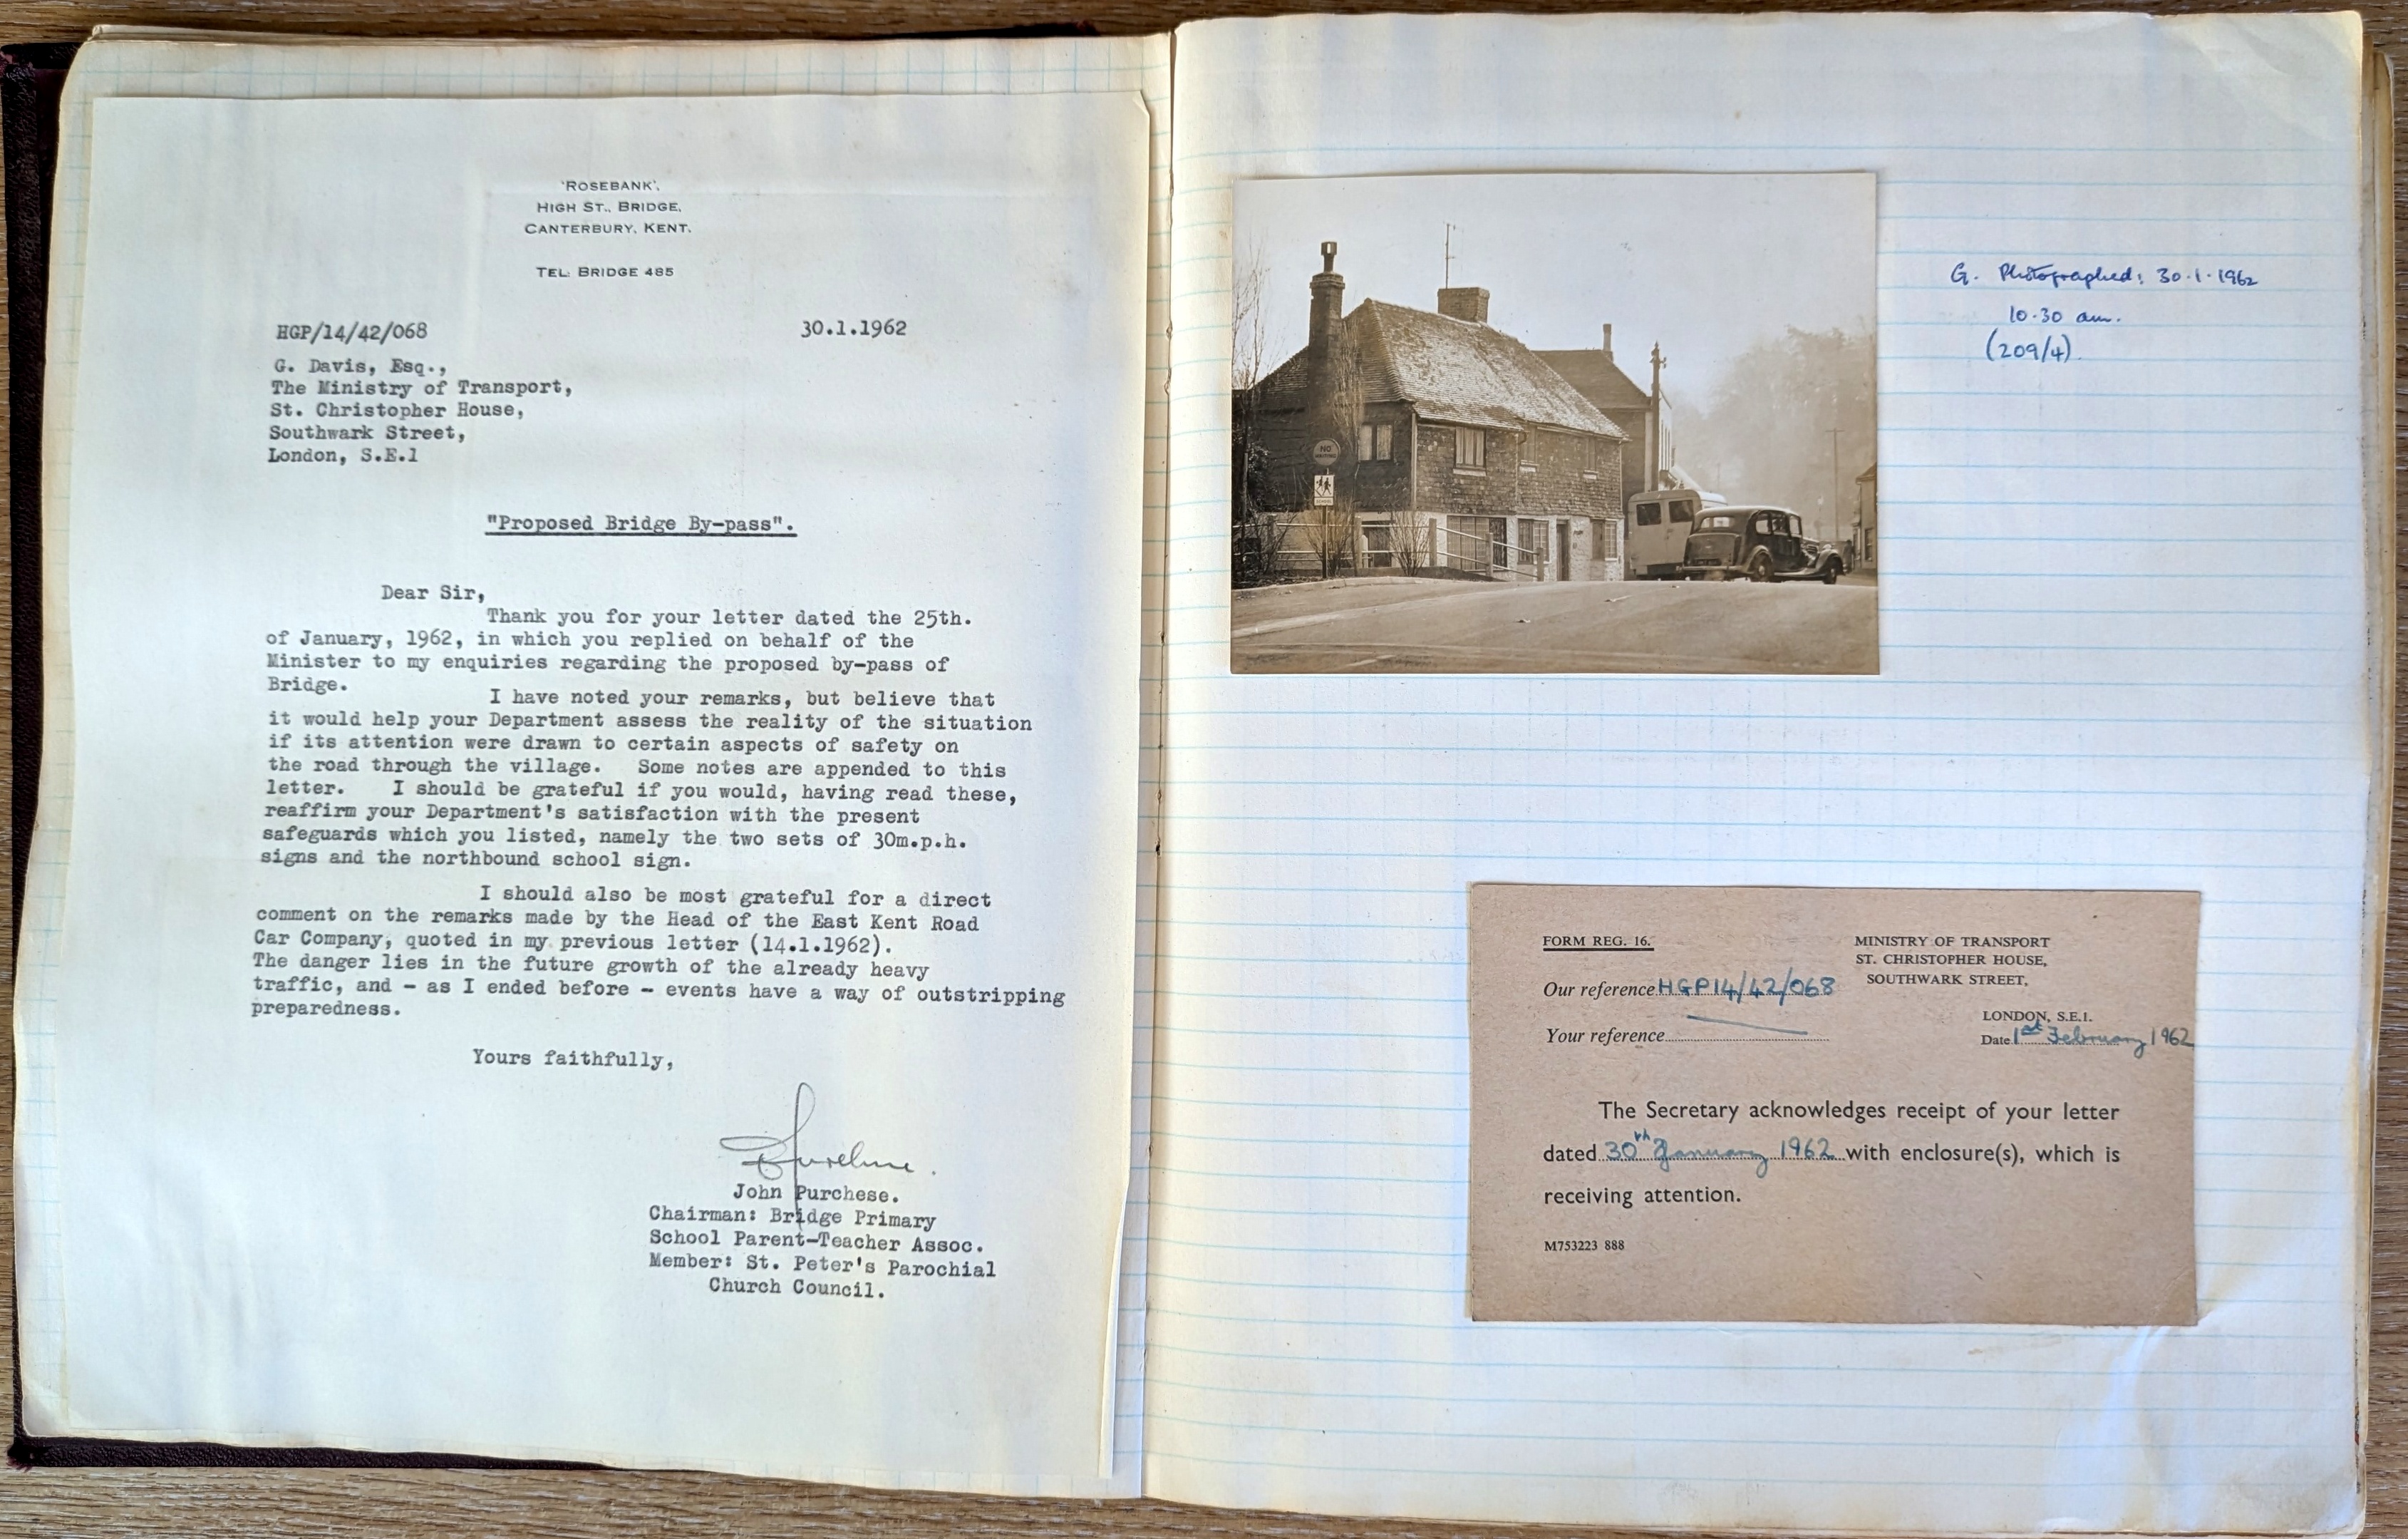 'ROSEBANK',
HIGH ST., BRIDGE,
CANTERBURY, KENT.
TEL: BRIDGE 485
HGP/14/42/068
30.1.1962
G. Davis, Esq.,
The Ministry of Transport,
St. Christopher House,
Southwark Street,
London, S.E.1
"Proposed Bridge By-pass".
Dear Sir,
Thank you for your letter dated the 25th.
of January, 1962, in which you replied on behalf of the
Minister to my enquiries regarding the proposed by-pass of
Bridge.
I have noted your remarks, but believe that
it would help your Department assess the reality of the situation
if its attention were drawn to certain aspects of safety on
the road through the village. Some notes are appended to this
letter. I should be grateful if you would, having read these,
reaffirm your Department's satisfaction with the present
safeguards which you listed, namely the two sets of 30m.p.h.
signs and the northbound school sign.
I should also be most grateful for a direct
comment on the remarks made by the Head of the East Kent Road
Car Company, quoted in my previous letter (14.1.1962).
The danger lies in the future growth of the already heavy
traffic, and - as I ended before - events have a way of outstripping
preparedness.
Yours faithfully,
John Purchese.
Chairman: Bridge Primary
School Parent-Teacher Assoc.
Member: St. Peter's Parochial
Church Council.
NO
WAITING
SCHOOL
G. Photographed: 30.1.1962
10.30 am.
(209/4).
FORM REG. 16.
MINISTRY OF TRANSPORT
ST. CHRISTOPHER HOUSE,
SOUTHWARK STREET,
LONDON, S.E.1.
Our reference HGP14/42/068
Your reference
Date 1st February 1962
The Secretary acknowledges receipt of your letter
dated 30th January 1962 with enclosure(s), which is
receiving attention.
M753223 888